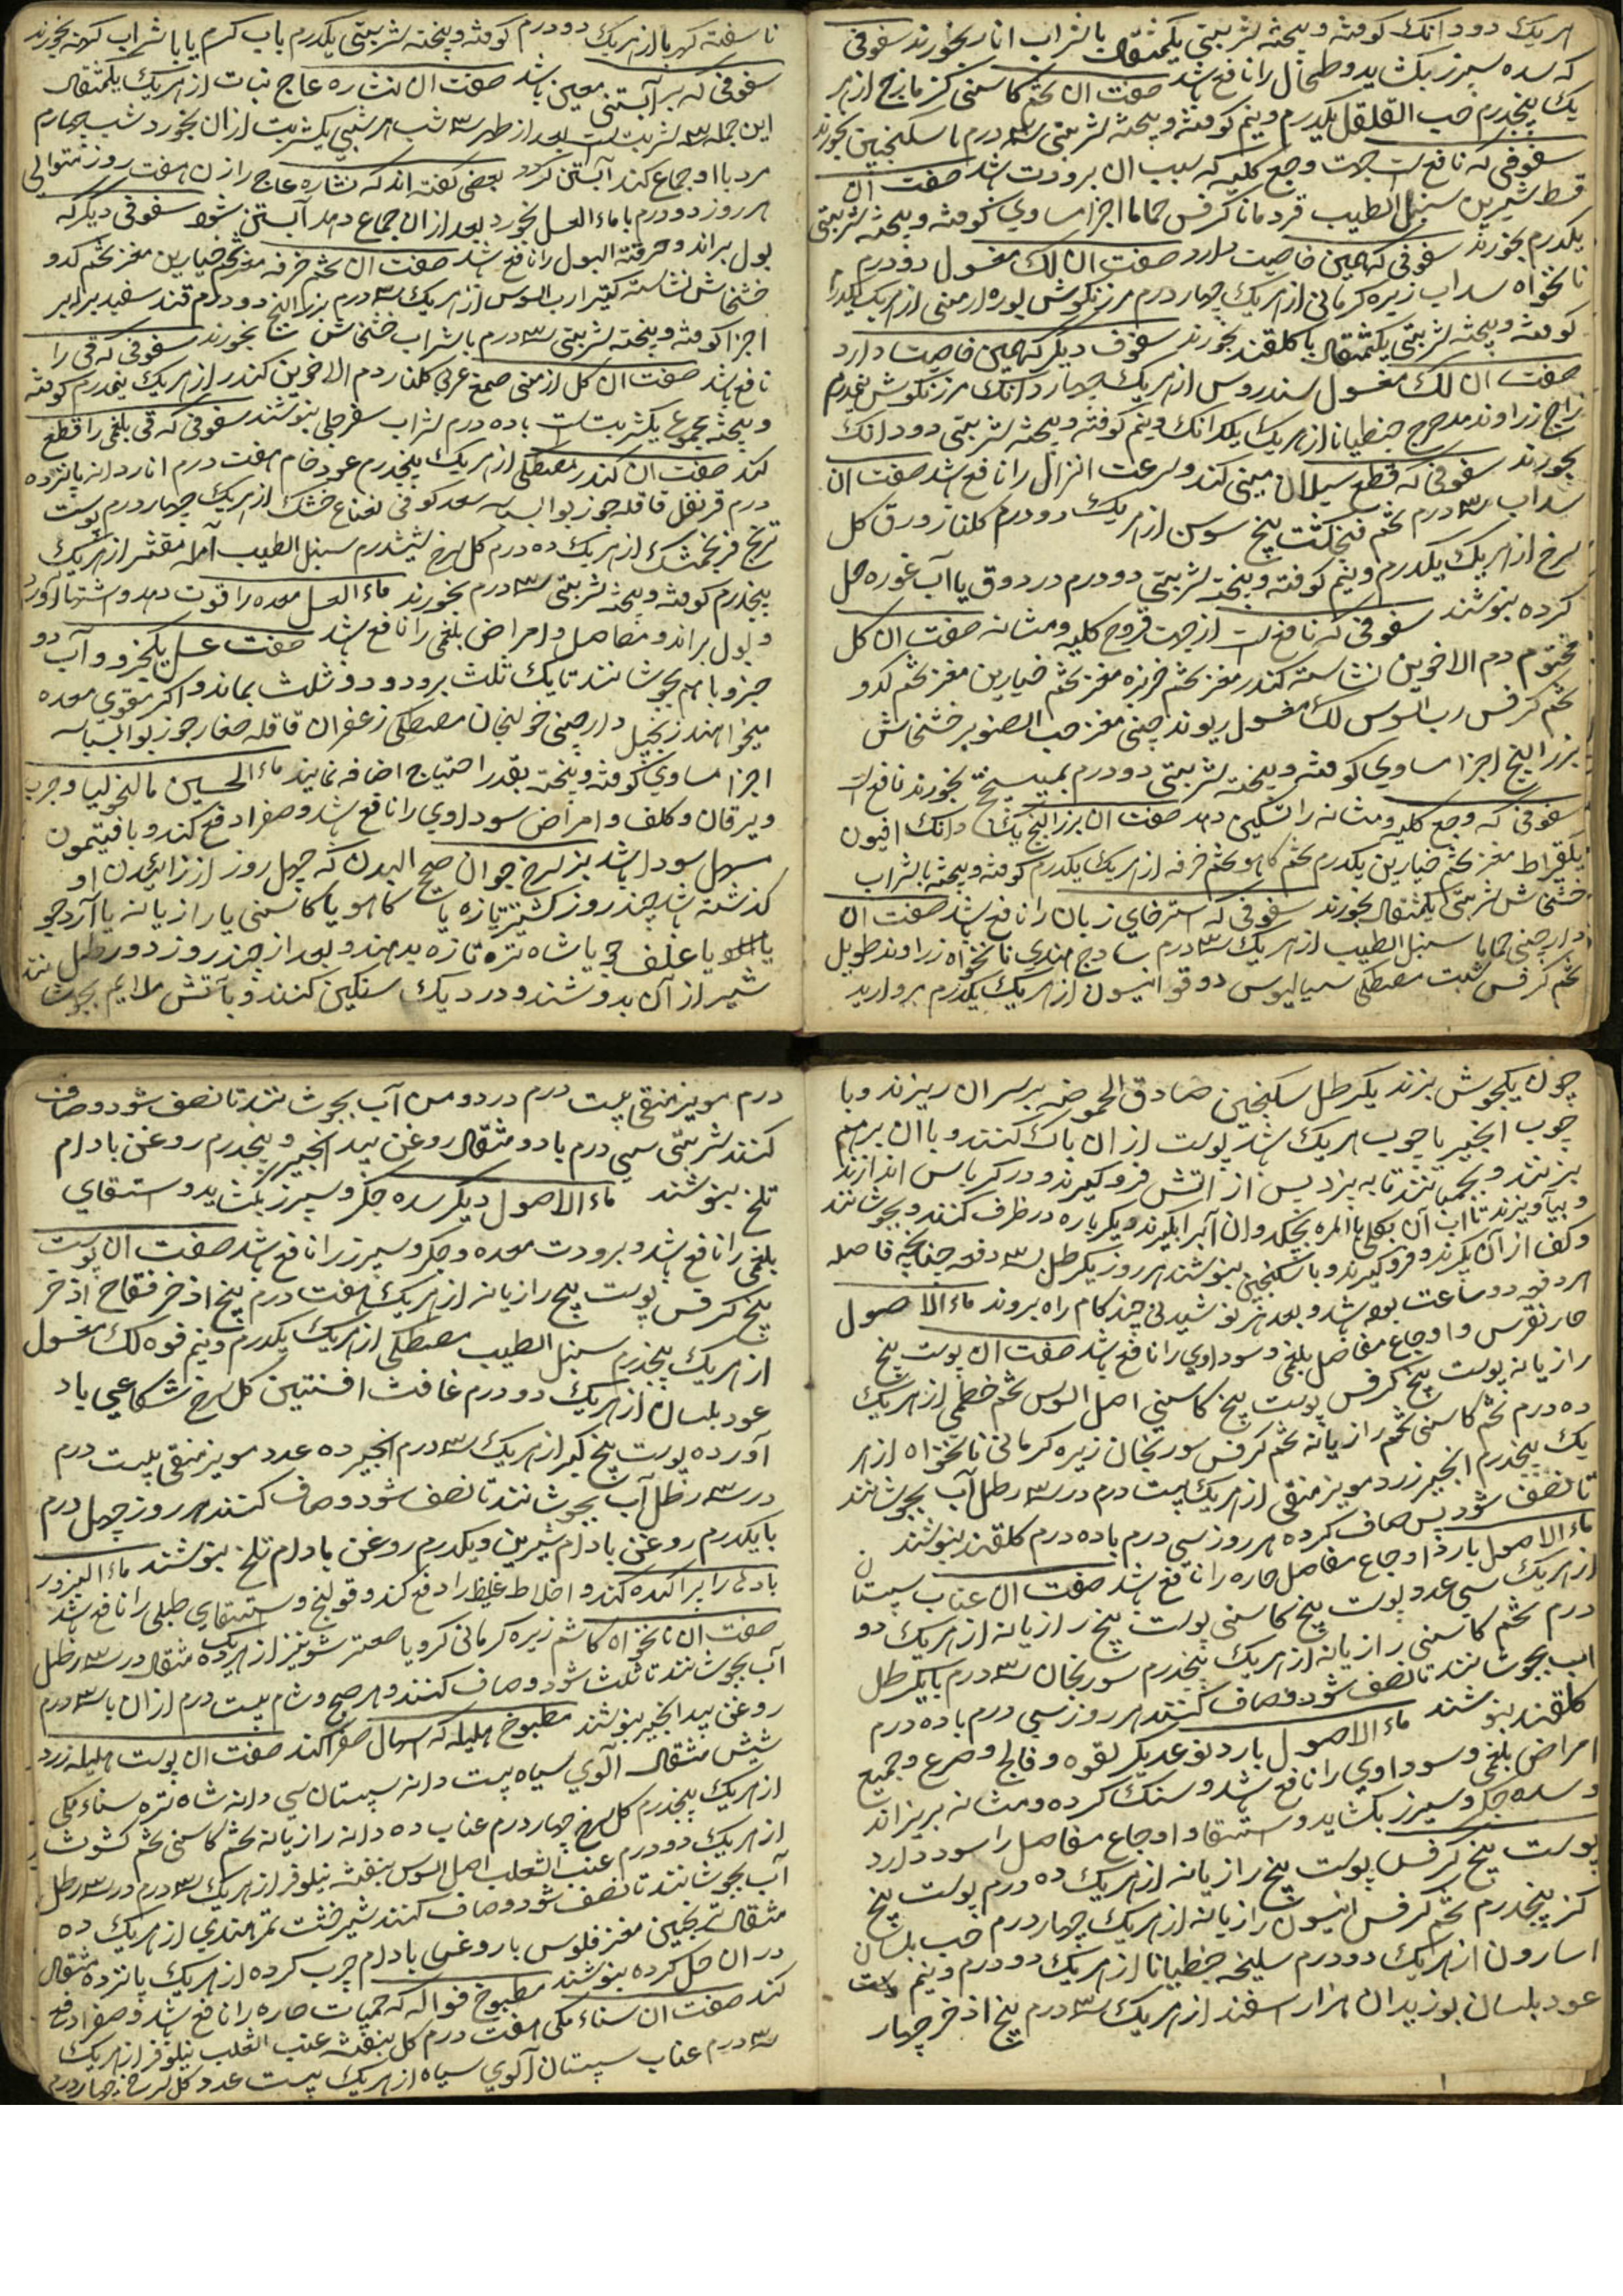 هریک دو دانک کوفته و بیخته شربتی یکمثقال با شراب انار بخورند سفوفی
که سده سپرز بکشاید و طحال را نافع باشد صفت آن تخم کاسنی کزمازج از هر
یک پنجدرم حب القلقل یکدرم و نیم کوفته و بیخته شربتی ۳ درم با سکنجبین بخورند
سفوفی که نافع است جهت وجع کلیه که سبب آن برودت باشد صفت آن
قسط شیرین سنبل الطیب قردمانا کرفس حماما اجزا مساوی کوفته و بیخته شربتی
یکدرم بخورند سفوفی که همین خاصیت دارد صفت آن لک مغسول دو درم
نانخواه سداب زیره کرمانی از هریک چهار درم مرزنکوش بوره ارمنی از هریک یکدرم
کوفته و بیخته شربتی یکمثقال با کلقند بخورند سفوف دیکر که همین خاصیت دارد
صفت آن لک مغسول سندروس از هریک چهار دانک مرزنکوش نیمدرم
زاج زراوند مدحرج جنطیانا از هریک یکدانک و نیم کوفته و بیخته شربتی دو دانک
بخورند سفوفی که قطع سیلان منی کند و سرعت انزال را نافع باشد صفت آن
سداب ۳ درم تخم فنجنکشت بیخ سوسن از هریک دو درم کلنار ورق کل
سرخ از هریک یکدرم و نیم کوفته و بیخته شربتی دو درم در دوق یا آب غوره حل
کرده بنوشند سفوفی که نافع است از جهت قروح کلیه و مثانه صفت آن کل
مختوم دم الاخوین نشاسته کندر مغز تخم خربزه مغز تخم خیارین مغز تخم کدو
تخم کرفس رب السوس لک مغسول ریوند چینی مغز حب الصنوبر خشخاش
بزر البنج اجزا مساوی کوفته و بیخته شربتی دو درم بمیبختج بخورند نافع است
سفوفی که وجع کلیه و مثانه را تسکین دهد صفت آن بزر البنج یک دانک افیون
یکقیراط مغز تخم خیارین یکدرم تخم کاهو تخم خرفه از هریک یکدرم کوفته و بیخته با شراب
خشخاش شربتی یکمثقال بخورند سفوفی که استرخای زبان را نافع باشد صفت آن
دارچینی حماما سنبل الطیب از هریک ۳ درم ساذج هندی نانخواه زراوند طویل
تخم کرفس شبت مصطکی سیسالیوس دوقو انیسون از هریک یکدرم مروارید
ناسفته کهربا از هریک دو درم کوفته و بیخته شربتی یکدرم باب کرم یا با شراب کهنه بخورند
سفوفی که بر آبستنی معین باشد صفت آن نشاره عاج نبات از هریک یکمثقال
این جمله ۳ شربت است بعد از طهر ۳ شب هر شبی یکشربت از آن بخورد شب چهارم
مرد با او جماع کند آبستن کردد بعضی کفته اند که نشاره عاج را زن هفت روز متوالی
هر روز دو درم با ماء العسل بخورد بعد از آن جماع دهد آبستن شود سفوفی دیکر که
بول براند و حرقته البول را نافع باشد صفت آن تخم خرفه مغز تخم خیارین مغز تخم کدو
خشخاش نشاسته کتیرا رب السوس از هریک ۳ درم بزر البنج دو درم قند سفید برابر
اجزا کوفته و بیخته شربتی ۳ درم با شراب خشخاش بخورند سفوفی که قی را
نافع باشد صفت آن کل ارمنی صمغ عربی کلنار دم الاخوین کندر از هریک نیمدرم کوفته
و بیخته مجموع یکشربتست با ده درم شراب سفرجلی بنوشند سفوفی که قی بلغمی را قطع
کند صفت آن کندر مصطکی از هریک پنجدرم عود خام هفت درم انار دانه پانزده
درم قرنفل قاقله جوزبوا بسباسه سعد کوفی نعناع خشک از هریک چهار درم پوست
ترنج فرنجمشک از هریک ده درم کل سرخ ششدرم سنبل الطیب آمله مقشر از هریک
پنجدرم کوفته و بیخته شربتی ۳ درم بخورند ماء العسل معده را قوت دهد و اشتها آورد
و بول براند و مفاصل و امراض بلغمی را نافع باشد صفت عسل یکجزو و آب دو
جزو با هم بجوشانند تا یک ثلث برود و دو ثلث بماند و اکر مقوی معده
میخواهند زنجبیل دارچینی خولنجان مصطکی زعفران قاقله صغار جوزبوا بسباسه
اجزا مساوی کوفته و بیخته بقدر احتیاج اضافه نمایند ماء الجبن مالیخولیا و جرب
و یرقان و کلف و امراض سوداوی را نافع باشد و صفرا دفع کند و با افتیمون
مسهل سودا باشد بز سرخ جوان صحیح البدن که چهل روز از زاییدن او
کذشته باشد چند روز کشنیز تازه یا کاهو یا کاسنی یا رازیانه یا آرد جو
یا علف جو یا شاه تره تازه بدهند و بعد از چند روز دو رطل
شیر از آن بدوشند و در دیک سنکین کنند و بآتش ملایم بجوشانند
چون یکجوش بزند یکرطل سکنجبین صادق الحموضه بر سر آن ریزند و با
چوب انجیر یا چوب هریک باشد پوست از آن پاک کنند و با آن بر هم
بزنند و بجنبانند تا به پزد پس از آتش فروکیرند و در کرباس اندازند
و بیاویزند تا آب آن بکلی بالمره بچکد و آن آب را بکیرند و یکرباره در ظرف کنند و بجوشانند
و کف از آن بکیرند و فروکیرند و با سکنجبین بنوشند هر روز یکرطل ۳ دفعه چنانچه فاصله
هر دفعه دو ساعت بوده باشد و بعد هر نوشیدنی چند کام راه بروند ماء الاصول
حار نقرس و اوجاع مفاصل بلغمی و سوداوی را نافع باشد صفت آن پوست بیخ
رازیانه پوست بیخ کرفس پوست بیخ کاسنی اصل السوس تخم خطمی از هریک
ده درم تخم کاسنی تخم رازیانه تخم کرفس سورنجان زیره کرمانی نانخواه از هر
یک پنجدرم انجیر زرد مویز منقی از هریک بیست درم در ۳ رطل آب بجوشانند
تا نصف شود پس صاف کرده هر روز سی درم با ده درم کلقند بنوشند
ماء الاصول بارد اوجاع مفاصل حاره را نافع باشد صفت آن عناب سپستان
از هریک سی عدد پوست بیخ کاسنی پوست بیخ رازیانه از هریک دو
درم تخم کاسنی رازیانه از هریک پنجدرم سورنجان ۳ درم با یکرطل
آب بجوشانند تا نصف شود و صاف کنند هر روز سی درم با ده درم
کلقند بنوشند ماء الاصول بارد نوعدیکر لقوه و فالج و صرع و جمیع
امراض بلغمی و سوداوی را نافع باشد و سنک کرده و مثانه بریزاند
و سده جکر و سپرز بکشاید و استسقا و اوجاع مفاصل را سود دارد
پوست بیخ کرفس پوست بیخ رازیانه از هریک ده درم پوست بیخ
کبر پنجدرم تخم کرفس انیسون رازیانه از هریک چهار درم حب بلسان
اسارون از هریک دو درم سلیخه جنطیانا از هریک دو درم و نیم
عود بلسان بوزیدان هزار اسفند از هریک ۳ درم بیخ اذخر چهار
درم مویز منقی بیست درم در دو من آب بجوشانند تا نصف شود و صاف
کنند شربتی سی درم با دو مثقال روغن بید انجیر و پنجدرم روغن بادام
تلخ بنوشند ماء الاصول دیکر سده جکر و سپرز بکشاید و استسقای
بلغمی را نافع باشد و برودت معده و جکر و سپرز را نافع باشد صفت آن پوست
بیخ کرفس پوست بیخ رازیانه از هریک هفت درم بیخ اذخر فقاح اذخر
از هریک پنجدرم سنبل الطیب مصطکی از هریک یکدرم و نیم فوه لک مغسول
عود بلسان از هریک دو درم غافث افسنتین کل سرخ شکاعی باد
آورده پوست بیخ کبر از هریک ۳ درم انجیر ده عدد مویز منقی بیست درم
در ۳ رطل آب بجوشانند تا نصف شود و صاف کنند هر روز چهل درم
با یکدرم روغن بادام شیرین و یکدرم روغن بادام تلخ بنوشند ماء البزور
بادها را پراکنده کند و اخلاط غلیظ را دفع کند و قولنج و استسقای طبلی را نافع باشد
صفت آن نانخواه کاشم زیره کرمانی کرویا صعتر شونیز از هریک ده مثقال در ۳ رطل
آب بجوشانند تا ثلث شود و صاف کنند و هر صبح و شام بیست درم از آن با ۳ درم
روغن بید انجیر بنوشند مطبوخ هلیله که اسهال صفرا کند صفت آن پوست هلیله زرد
شیش مثقال آلوی سیاه بیست دانه سپستان سی دانه شاه تره سناء مکی
از هریک پنجدرم کل سرخ چهار درم عناب ده دانه رازیانه تخم کاسنی تخم کشوث
از هریک دو درم عنب الثعلب اصل السوس بنفشه نیلوفر از هریک ۳ درم در ۳ رطل
آب بجوشانند تا نصف شود و صاف کنند شیرخشت تمر هندی از هریک ده
مثقال ترنجبین مغز فلوس با روغن بادام چرب کرده از هریک پانزده مثقال
در آن حل کرده بنوشند مطبوخ فواکه که حمیات حاره را نافع باشد و صفرا دفع
کند صفت آن سناء مکی هفت درم کل بنفشه عنب الثعلب نیلوفر از هریک
۳ درم عناب سپستان آلوی سیاه از هریک بیست عدد کل سرخ چهار درم